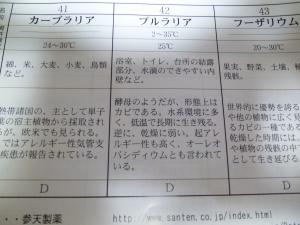 41
カーブラリア
24～30℃
綿、米、大麦、小麦、鳥類
など。
熱帯諸国の、主として単子
葉の宿主植物から採取され
るが、欧米でも見られる。
ではアレルギー性気管支
疾患が報告されている。
D
42
プルラリア
2～35℃
25℃
浴室、トイレ、台所の結露
部分、水滴のできやすい内
壁など。
酵母のようだが、形態上は
カビである。水系環境に多
く、低温で長期に生き残る。
逆に、乾燥に弱い。起アレ
ルギー性も高く、オーレオ
バシディウムとも言われて
いる。
D
43
フーザリウム
20～30℃
果実、野菜、土壌、植
残骸。
世界的に優勢を誇る
や他の動物に広く見
るカビの一種である
乾燥に弱く、
や植物の残骸の中
として生き延びる
D
・・参天製薬
http://www.santen.co.jp/index.html